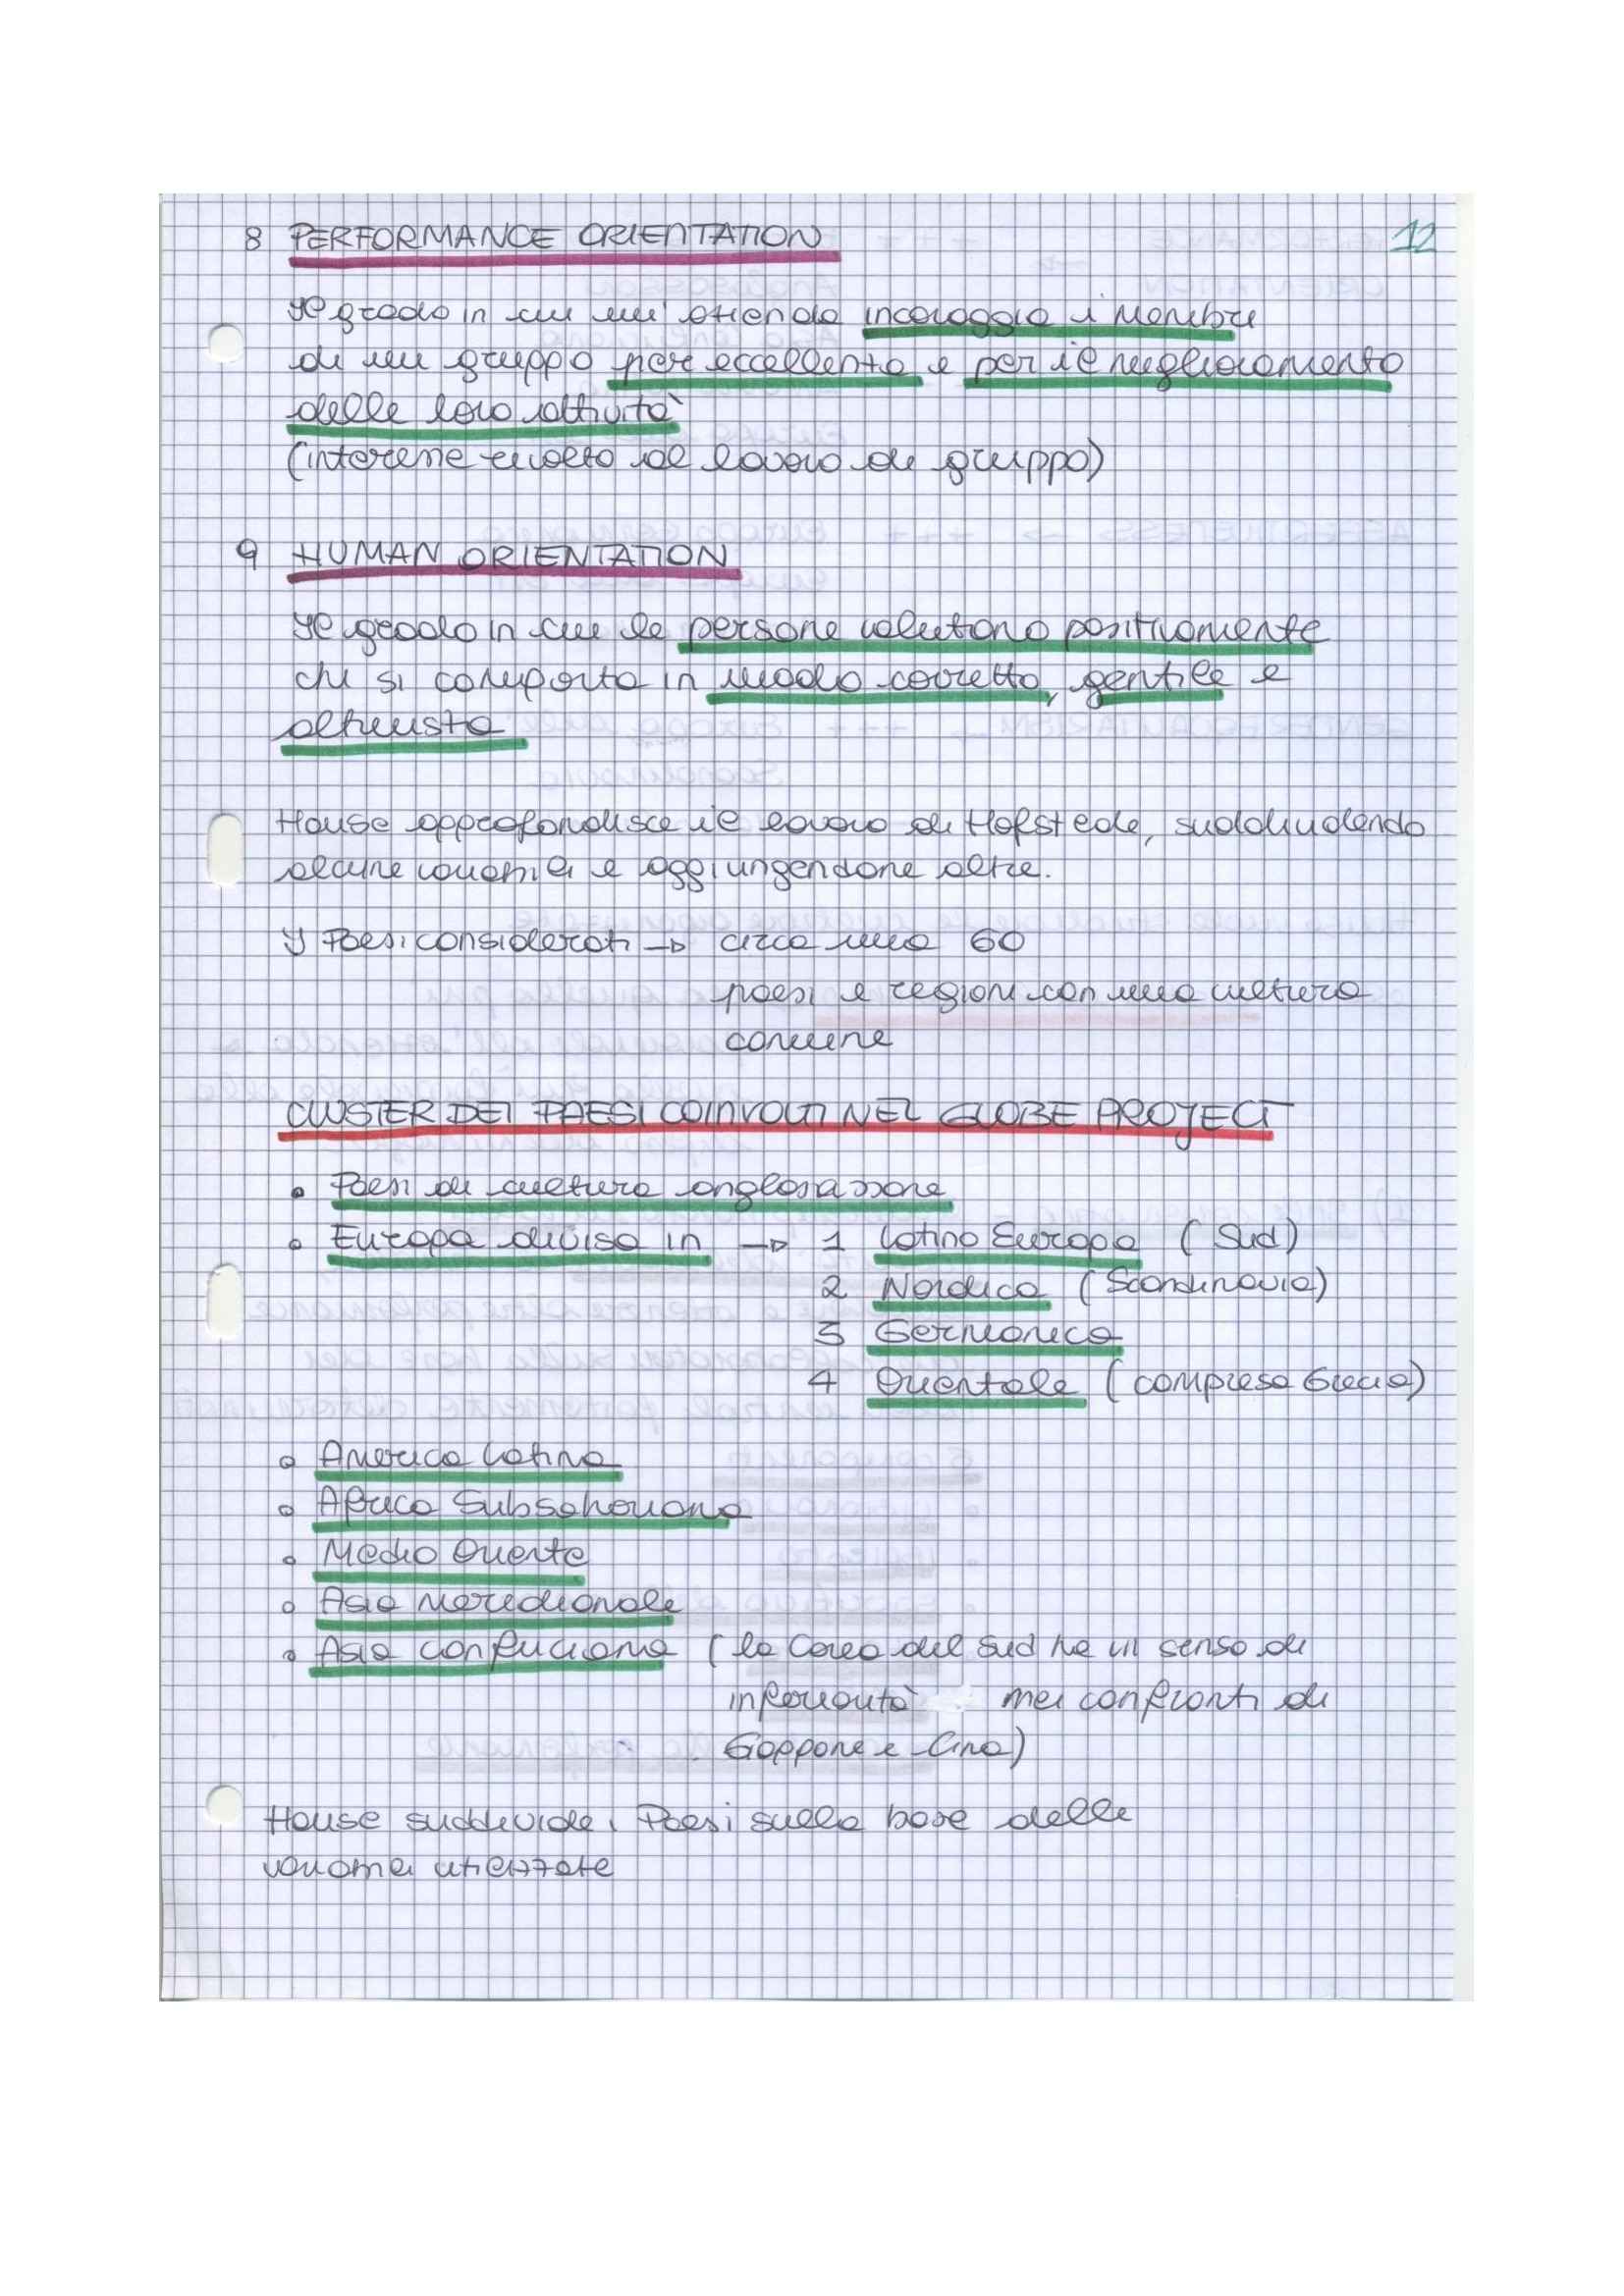 12
8 PERFORMANCE ORIENTATION
Il grado in cui un' azienda incoraggia i membri
di un gruppo per eccellenza e per il miglioramento
delle loro attività
(interesse rivolto al lavoro di gruppo)
9 HUMAN ORIENTATION
Il grado in cui le persone valutano positivamente
chi si comporta in modo corretto, gentile e
altruista
House approfondisce il lavoro di Hofstede, suddividendo
alcune variabili e aggiungendone altre.
I Paesi considerati → circa una 60
paesi e regioni con una cultura
comune
CLUSTER DEI PAESI COINVOLTI NEL GLOBE PROJECT
• Paesi di cultura anglosassone
• Europa divisa in → 1 Latino Europa (Sud)
2 Nordica (Scandinavia)
3 Germanica
4 Orientale (compresa Grecia)
• America Latina
• Africa Subsahariana
• Medio Oriente
• Asia Meridionale
• Asia confuciana (la Corea del Sud ha un senso di
inferiorità nei confronti di
Giappone e Cina)
House suddivide i Paesi sulla base delle
utilizzate